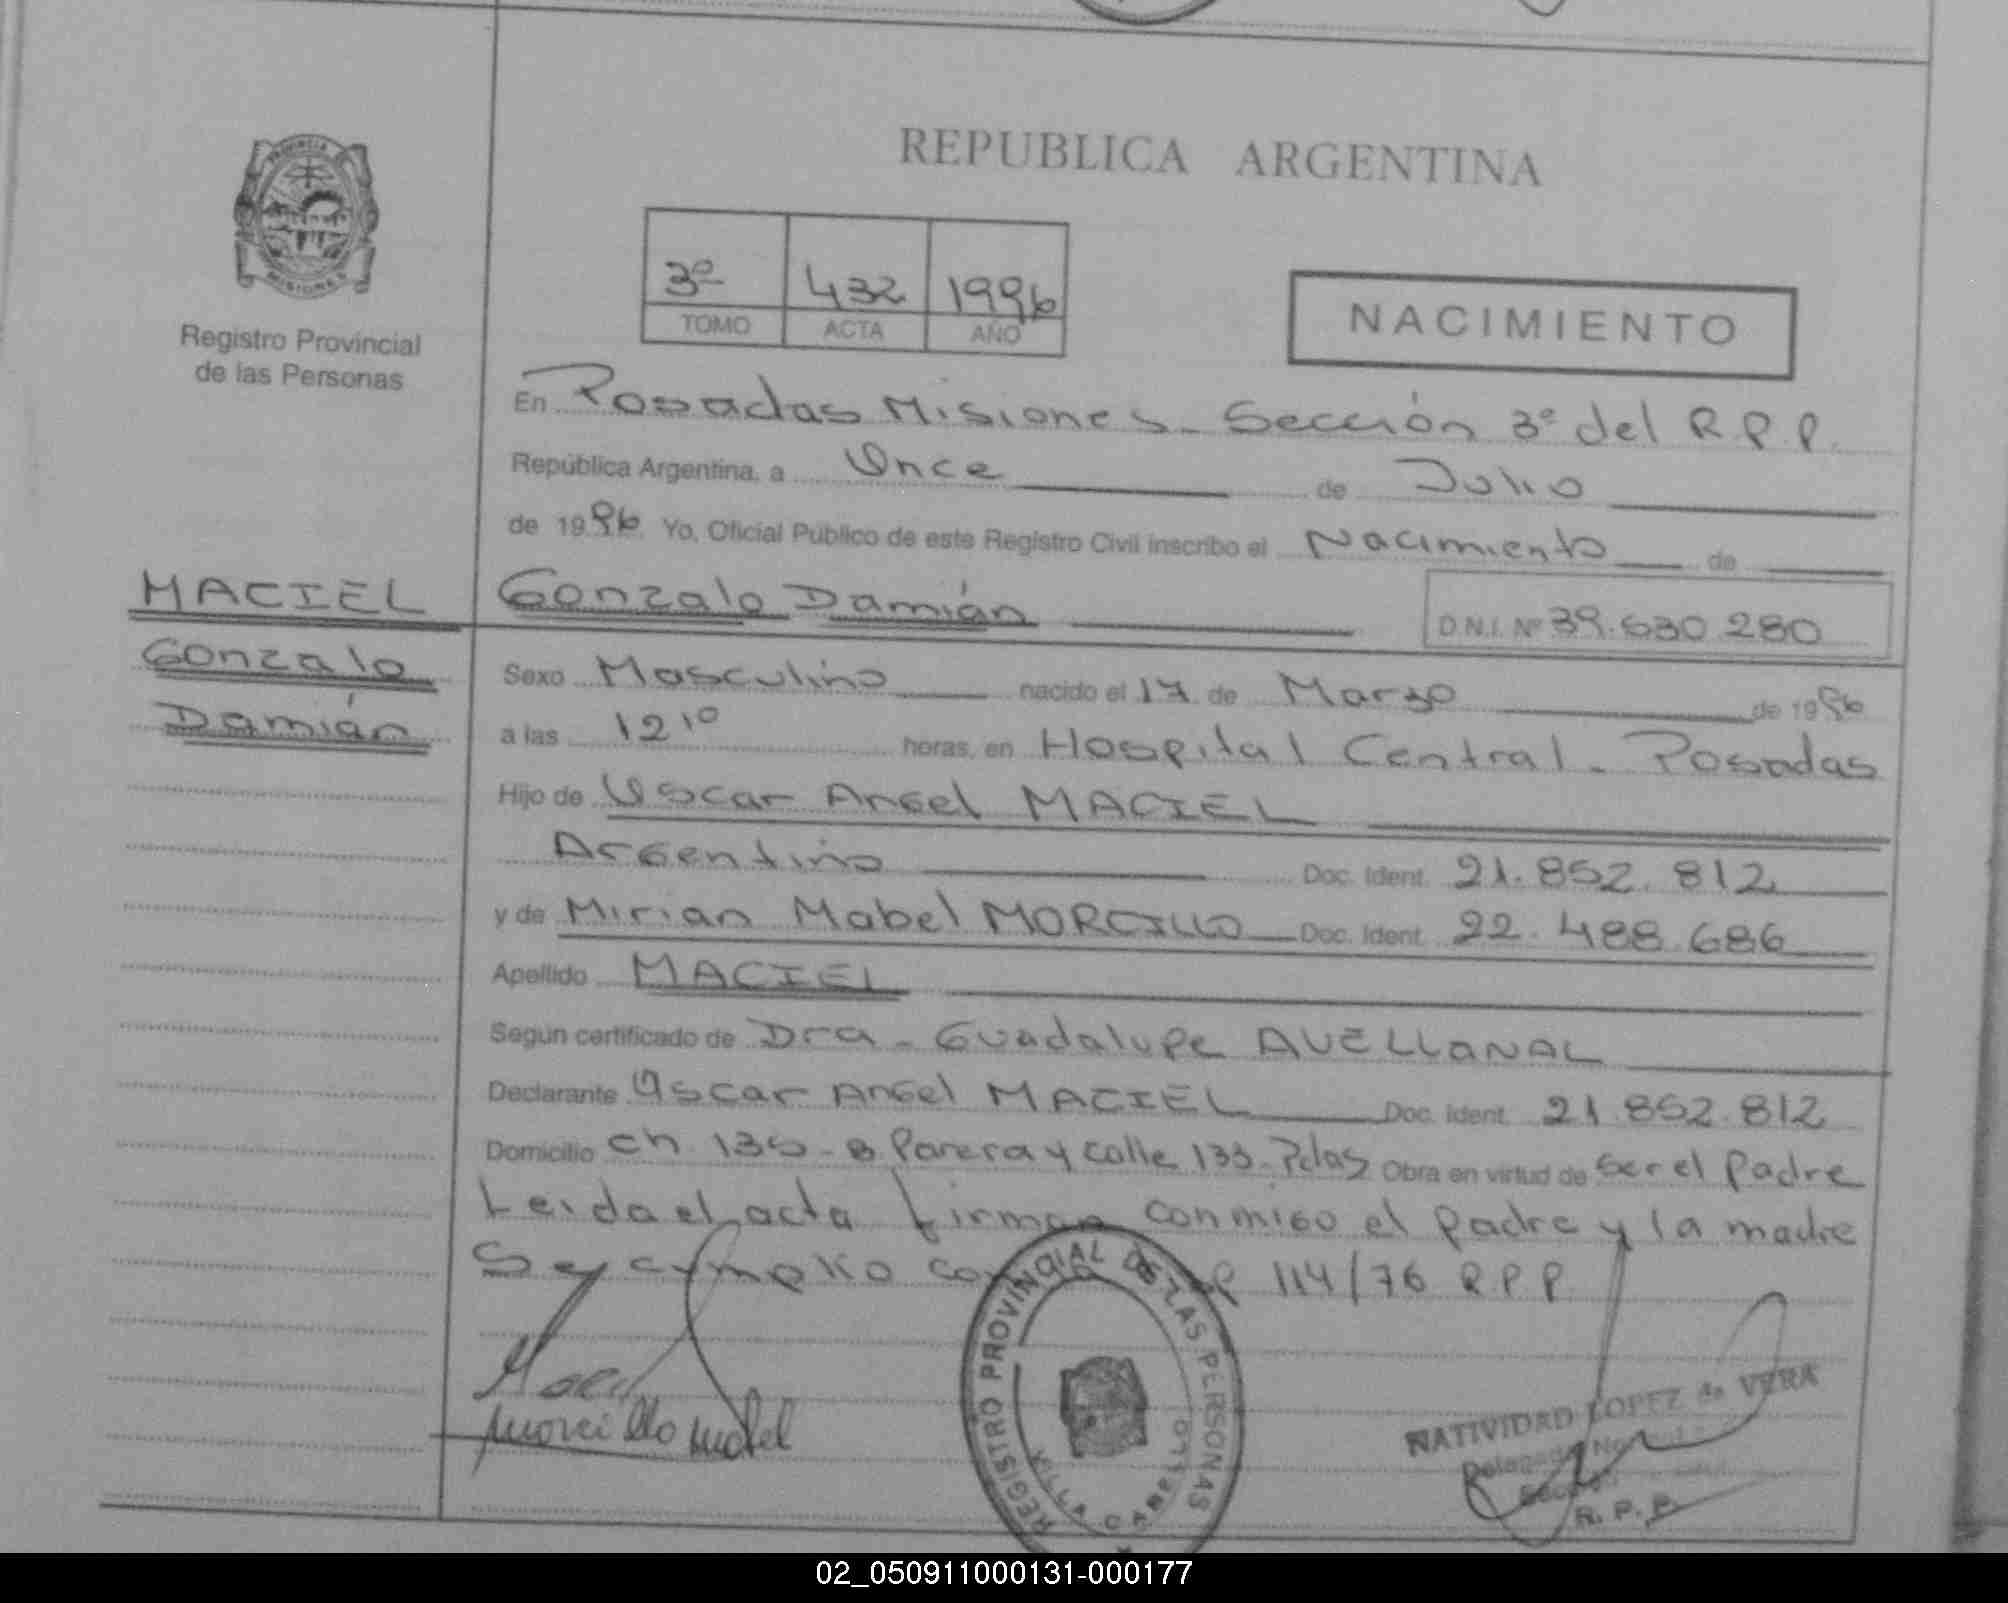 REPUBLICA ARGENTINA
PROVINCIA
MISIONES
Registro Provincial
de las Personas
3º 432 1996
TOMO ACTA AÑO
NACIMIENTO
En Posadas Misiones - Sección 3º del R.P.P.
República Argentina, a Once de Julio
de 1996 Yo, Oficial Público de este Registro Civil inscribo el Nacimiento de
MACIEL Gonzalo Damián D.N.I. Nº 39.630.280
Gonzalo
Damián
Sexo Masculino nacido el 17 de Marzo de 1996
a las 12 10 horas, en Hospital Central - Posadas
Hijo de Oscar Angel MACIEL
Argentino Doc. Ident. 21.852.812
y de Mirian Mabel MORCILLO Doc. Ident. 22.488.686
Apellido MACIEL
Según certificado de Dra - Guadalupe AVELLANAL
Declarante Oscar Angel MACIEL Doc. Ident. 21.852.812
Domicilio Ch 135 - B Parera y calle 133 - Pdas Obra en virtud de ser el padre
Leida el acta firman conmigo el padre y la madre
114/76 R.P.P.
Morcillo Mabel
REGISTRO PROVINCIAL DE LAS PERSONAS
VILLA CABELLO
NATIVIDAD LOPEZ de VERA
R. P. P.
02_050911000131-000177